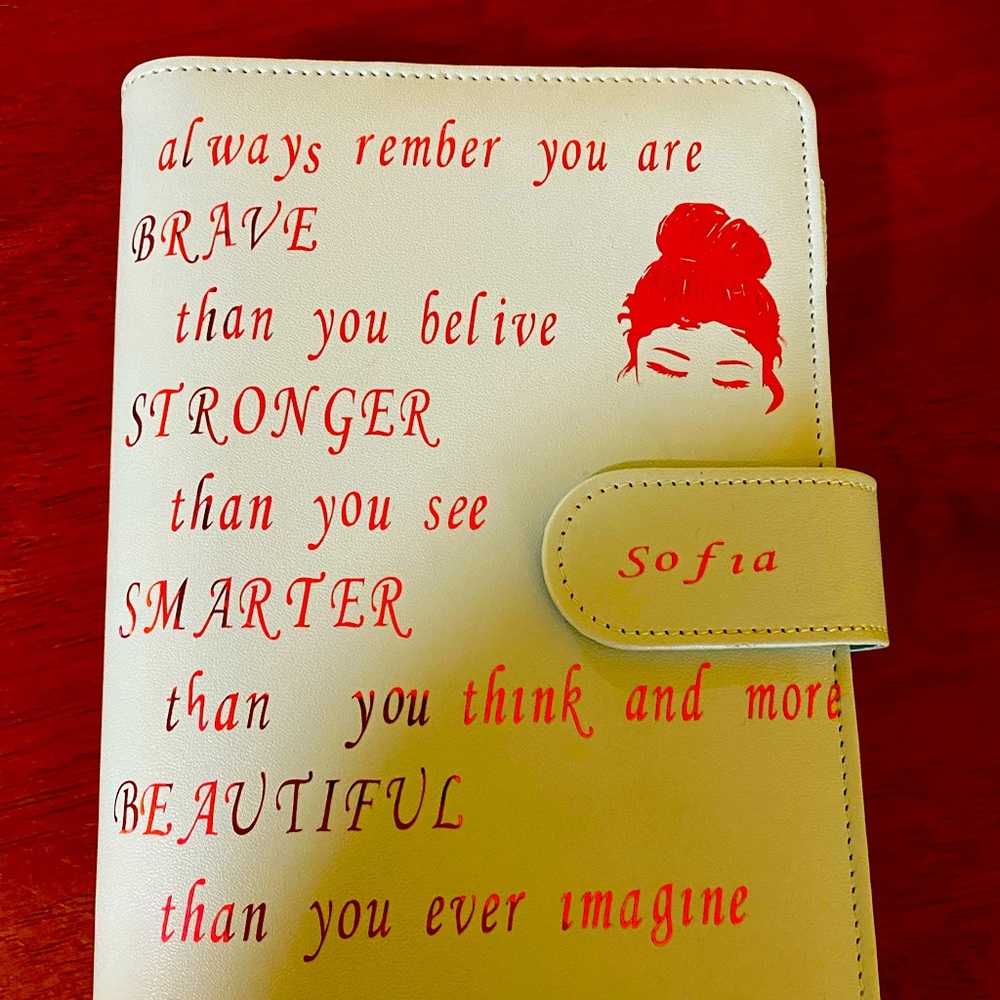 always rember you are
BRAVE
than you belive
STRONGER
than you see
Sofia
SMARTER
than you think and more
BEAUTIFUL
than you ever imagine